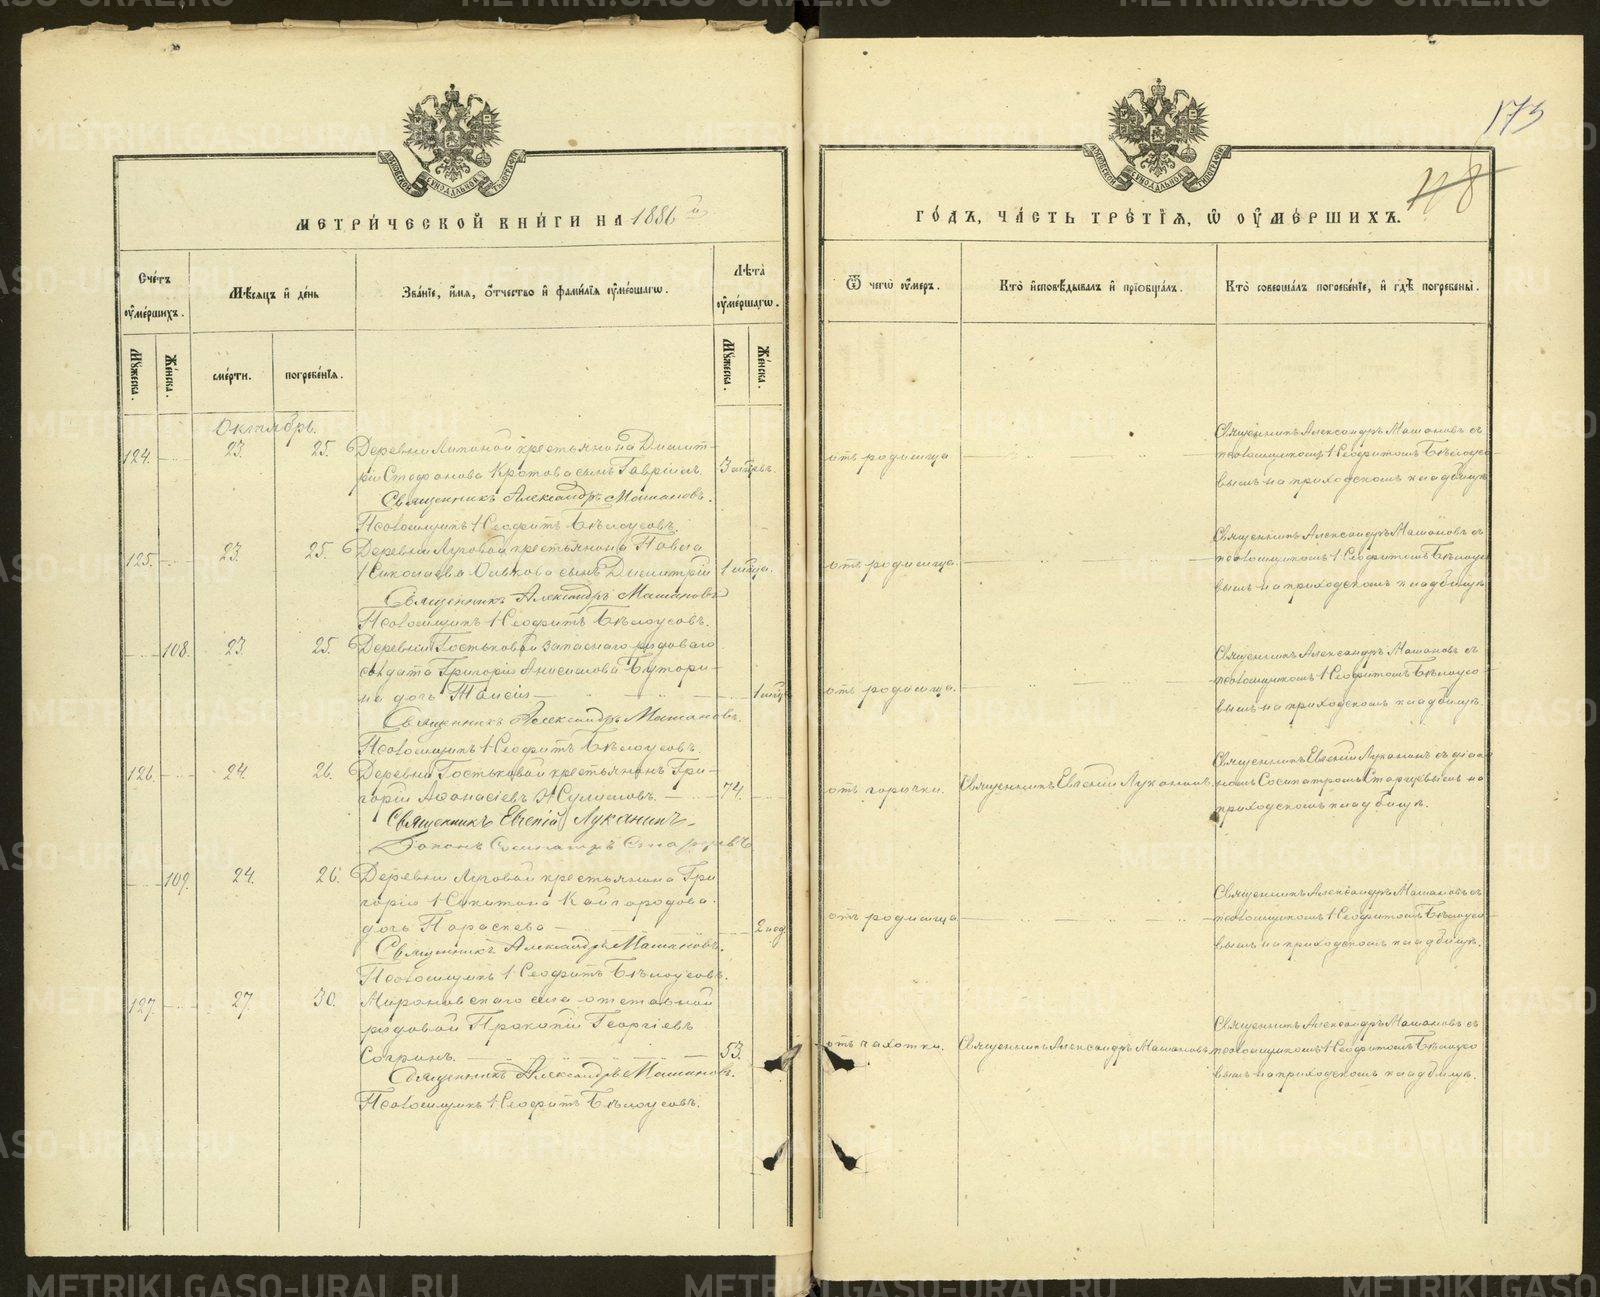 173
118
МЕТРИЧЕСКОЙ КНИГИ НА 1886й
ГОДЪ, ЧАСТЬ ТРЕТІЯ, Ѿ ОУМЕРШИХЪ.
Счетъ оумершихъ.
Мѣсяцъ и день
Званіе, имя, отчество и фамилія оумершагω.
Лѣта оумершагω.
Ѿ чегω оумеръ.
Кто исповѣдывалъ и пріобщалъ.
Кто совершалъ погребеніе, и гдѣ погребены.
Мужеска.
Женска.
смерти.
погребенія.
Мужеска.
Женска.
Октябрь.
124. 23. 25. Деревни Липиной крестьянина Димит-
рія Стефанова Кротова сынъ Гавріилъ.
Священникъ Александръ Машановъ.
Псаломщикъ Неофитъ Бѣлоусовъ.
отъ родимца
Священникъ Александръ Машановъ съ
псаломщикомъ Неофитомъ Бѣлоусо-
вымъ на приходскомъ кладбищѣ
125. 23. 25. Деревни Луговой крестьянина Павла
Николаева сынъ Димитрій 1 мѣсяца.
Священникъ Александръ Машановъ
Псаломщикъ Неофитъ Бѣлоусовъ.
отъ родимца.
Священникъ Александръ Машановъ съ
псаломщикомъ Неофитомъ Бѣлоусо
вымъ на приходскомъ кладбищѣ
108. 23. 25. Деревни Гостьковой запаснаго рядоваго
солдата Григорія Анисимова Бутори-
на дочь Таисія
Священникъ Александръ Машановъ.
Псаломщикъ Неофитъ Бѣлоусовъ.
отъ родимца.
Священникъ Александръ Машановъ съ
псаломщикомъ Неофитомъ Бѣлоусо-
вымъ на приходскомъ кладбищѣ.
126. 24. 26. Деревни Гостьковой крестьянинъ Гри-
горій Афанасіевъ 74.
Священникъ Евгеній Луканинъ.
Діаконъ Сосипатръ Старцевъ
отъ горячки.
Священникъ Евгеній Луканинъ.
Священникъ Евгеній Луканинъ съ діако
номъ Сосипатромъ Старцевымъ на
приходскомъ кладбищѣ.
109. 24. 26. Деревни Луговой крестьянина Гри
горія Никитина Кайгородова.
дочь Параскева 2 нед
Священникъ Александръ Машановъ.
Псаломщикъ Неофитъ Бѣлоусовъ.
отъ родимца
Священникъ Александръ Машановъ съ
псаломщикомъ Неофитомъ Бѣлоусо
вымъ на приходскомъ кладбищѣ.
127. 27. 30. Мироновскаго села отставной
рядовой Прокопій Георгіевъ
Согринъ. 53.
Священникъ Александръ Машановъ.
Псаломщикъ Неофитъ Бѣлоусовъ.
отъ чахотки.
Священникъ Александръ Машановъ.
Священникъ Александръ Машановъ съ
псаломщикомъ Неофитомъ Бѣлоусо
вымъ на приходскомъ кладбищѣ.
METRIKI.GASO-URAL.RU